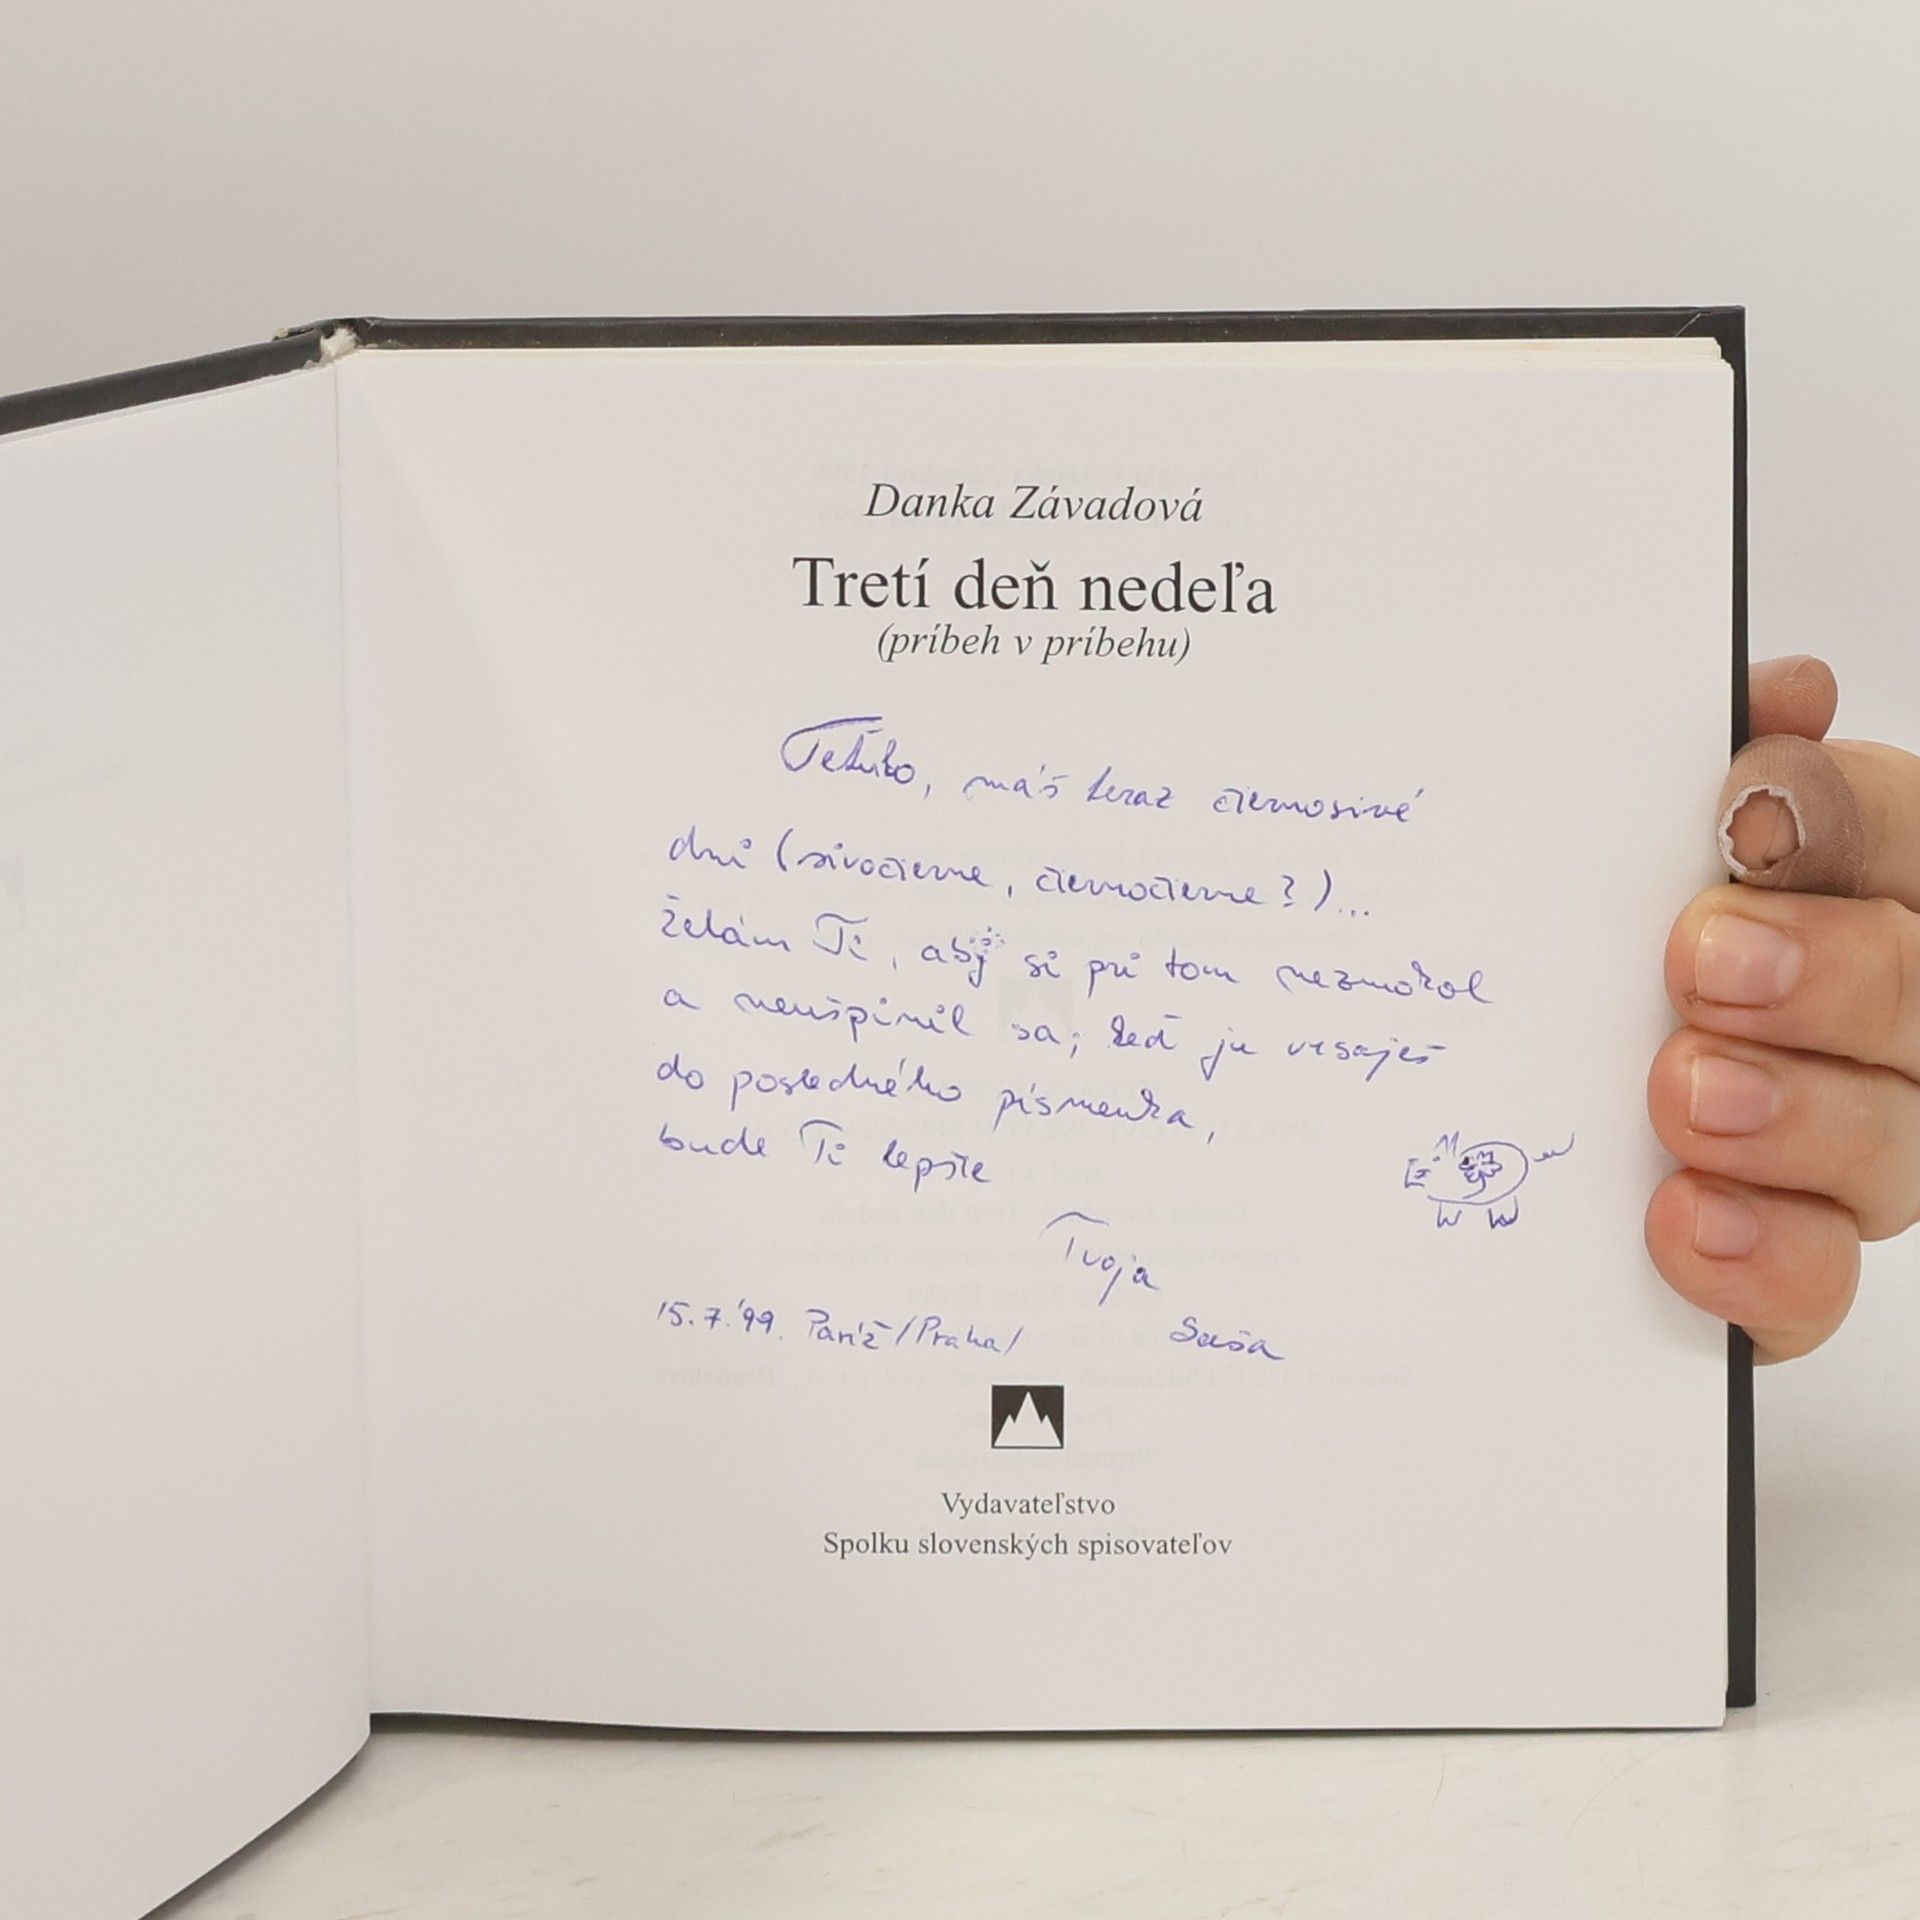 Danka Závadová
Tretí deň nedeľa
(príbeh v príbehu)
máš teraz čiernosivé
dni (sivočierne, čiernočierne?)...
želám Ti, aby si pri tom nezmokol
a neušpinil sa; keď ju vrsaješ
do posledného písmenka,
bude Ti lepšie
Tvoja
15.7.'99. Paríž /Praha/ Saša
Vydavateľstvo
Spolku slovenských spisovateľov